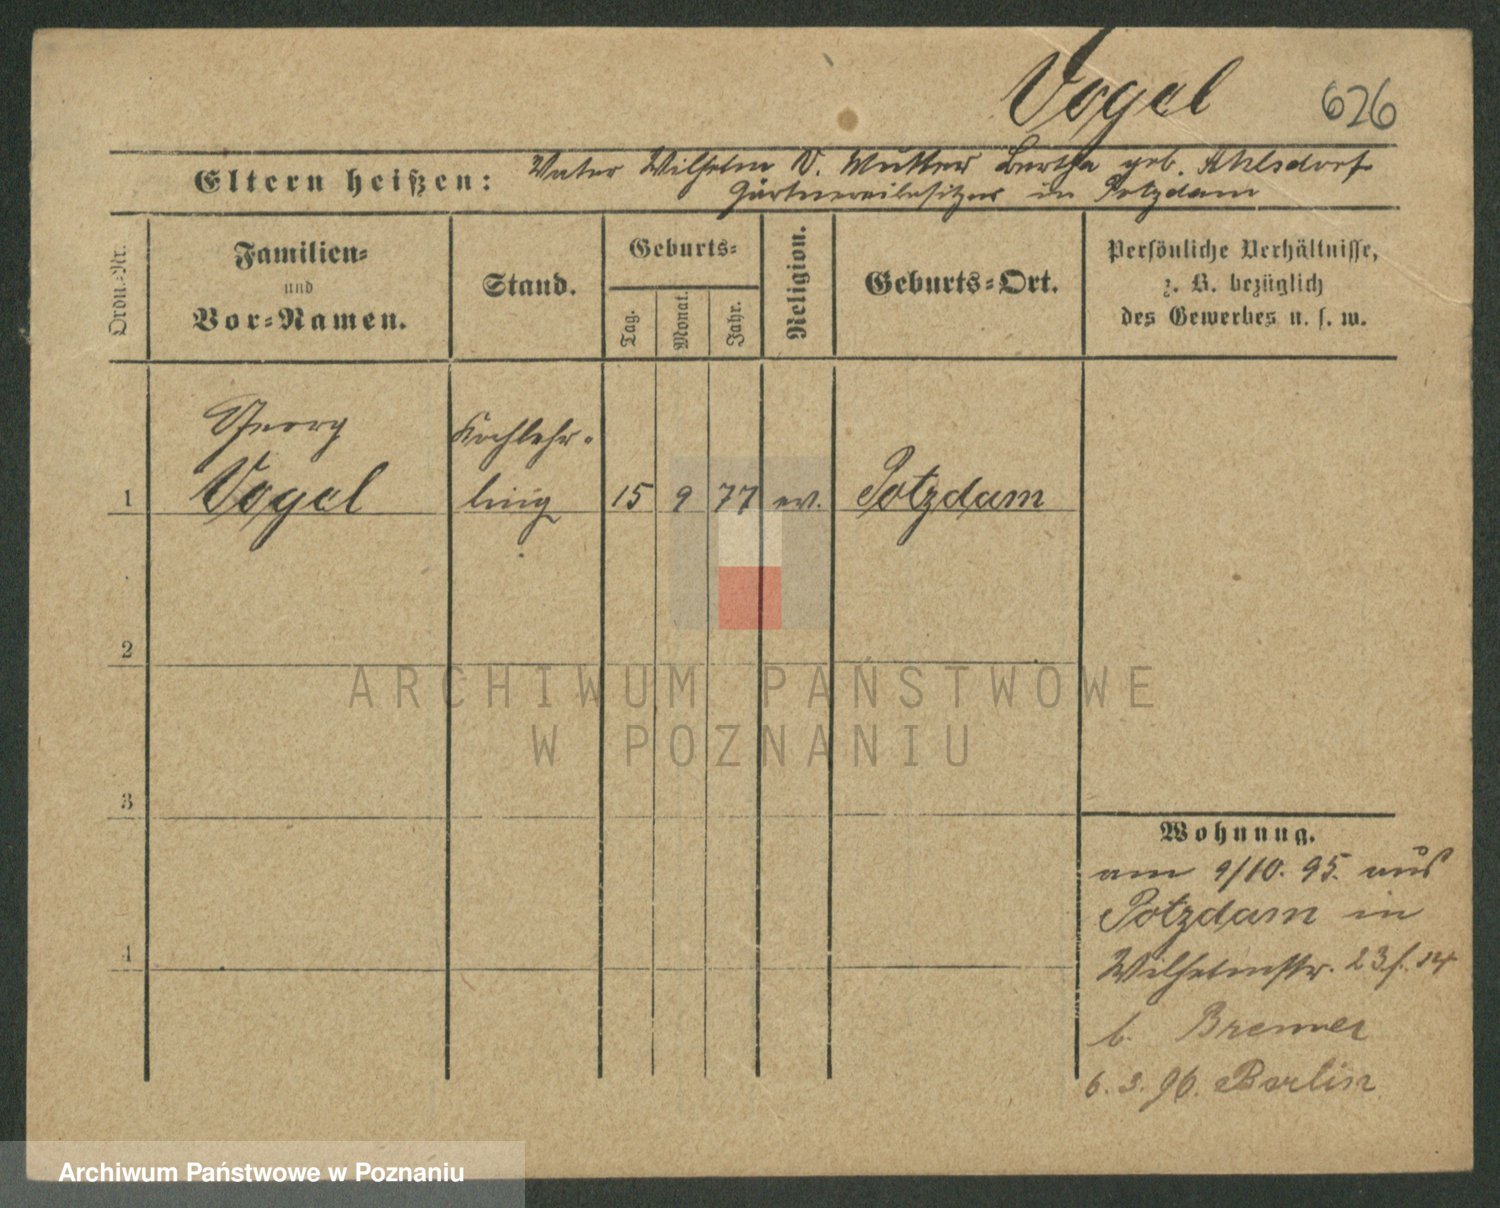 Vogel 626
Eltern heißen: Vater Wilhelm V. Mutter Bertha geb. Ahlsdorf
Gärtnereibesitzer in Potzdam
Ordn.-Nr.
Familien-
und
Vor-Namen.
Stand.
Geburts-
Tag.
Monat.
Jahr.
Religion.
Geburts-Ort.
Persönliche Verhältnisse,
z. B. bezüglich
des Gewerbes u. s. w.
Georg Kochlehr-
1 Vogel ling 15 9 77 ev. Potzdam
2
3
4
Wohnung.
am 9/10. 95. aus
Potzdam in
Wilhelmstr. 23/.
b. Bremer
6. 3. 96. Berlin
ARCHIWUM PAŃSTWOWE
W POZNANIU
Archiwum Państwowe w Poznaniu